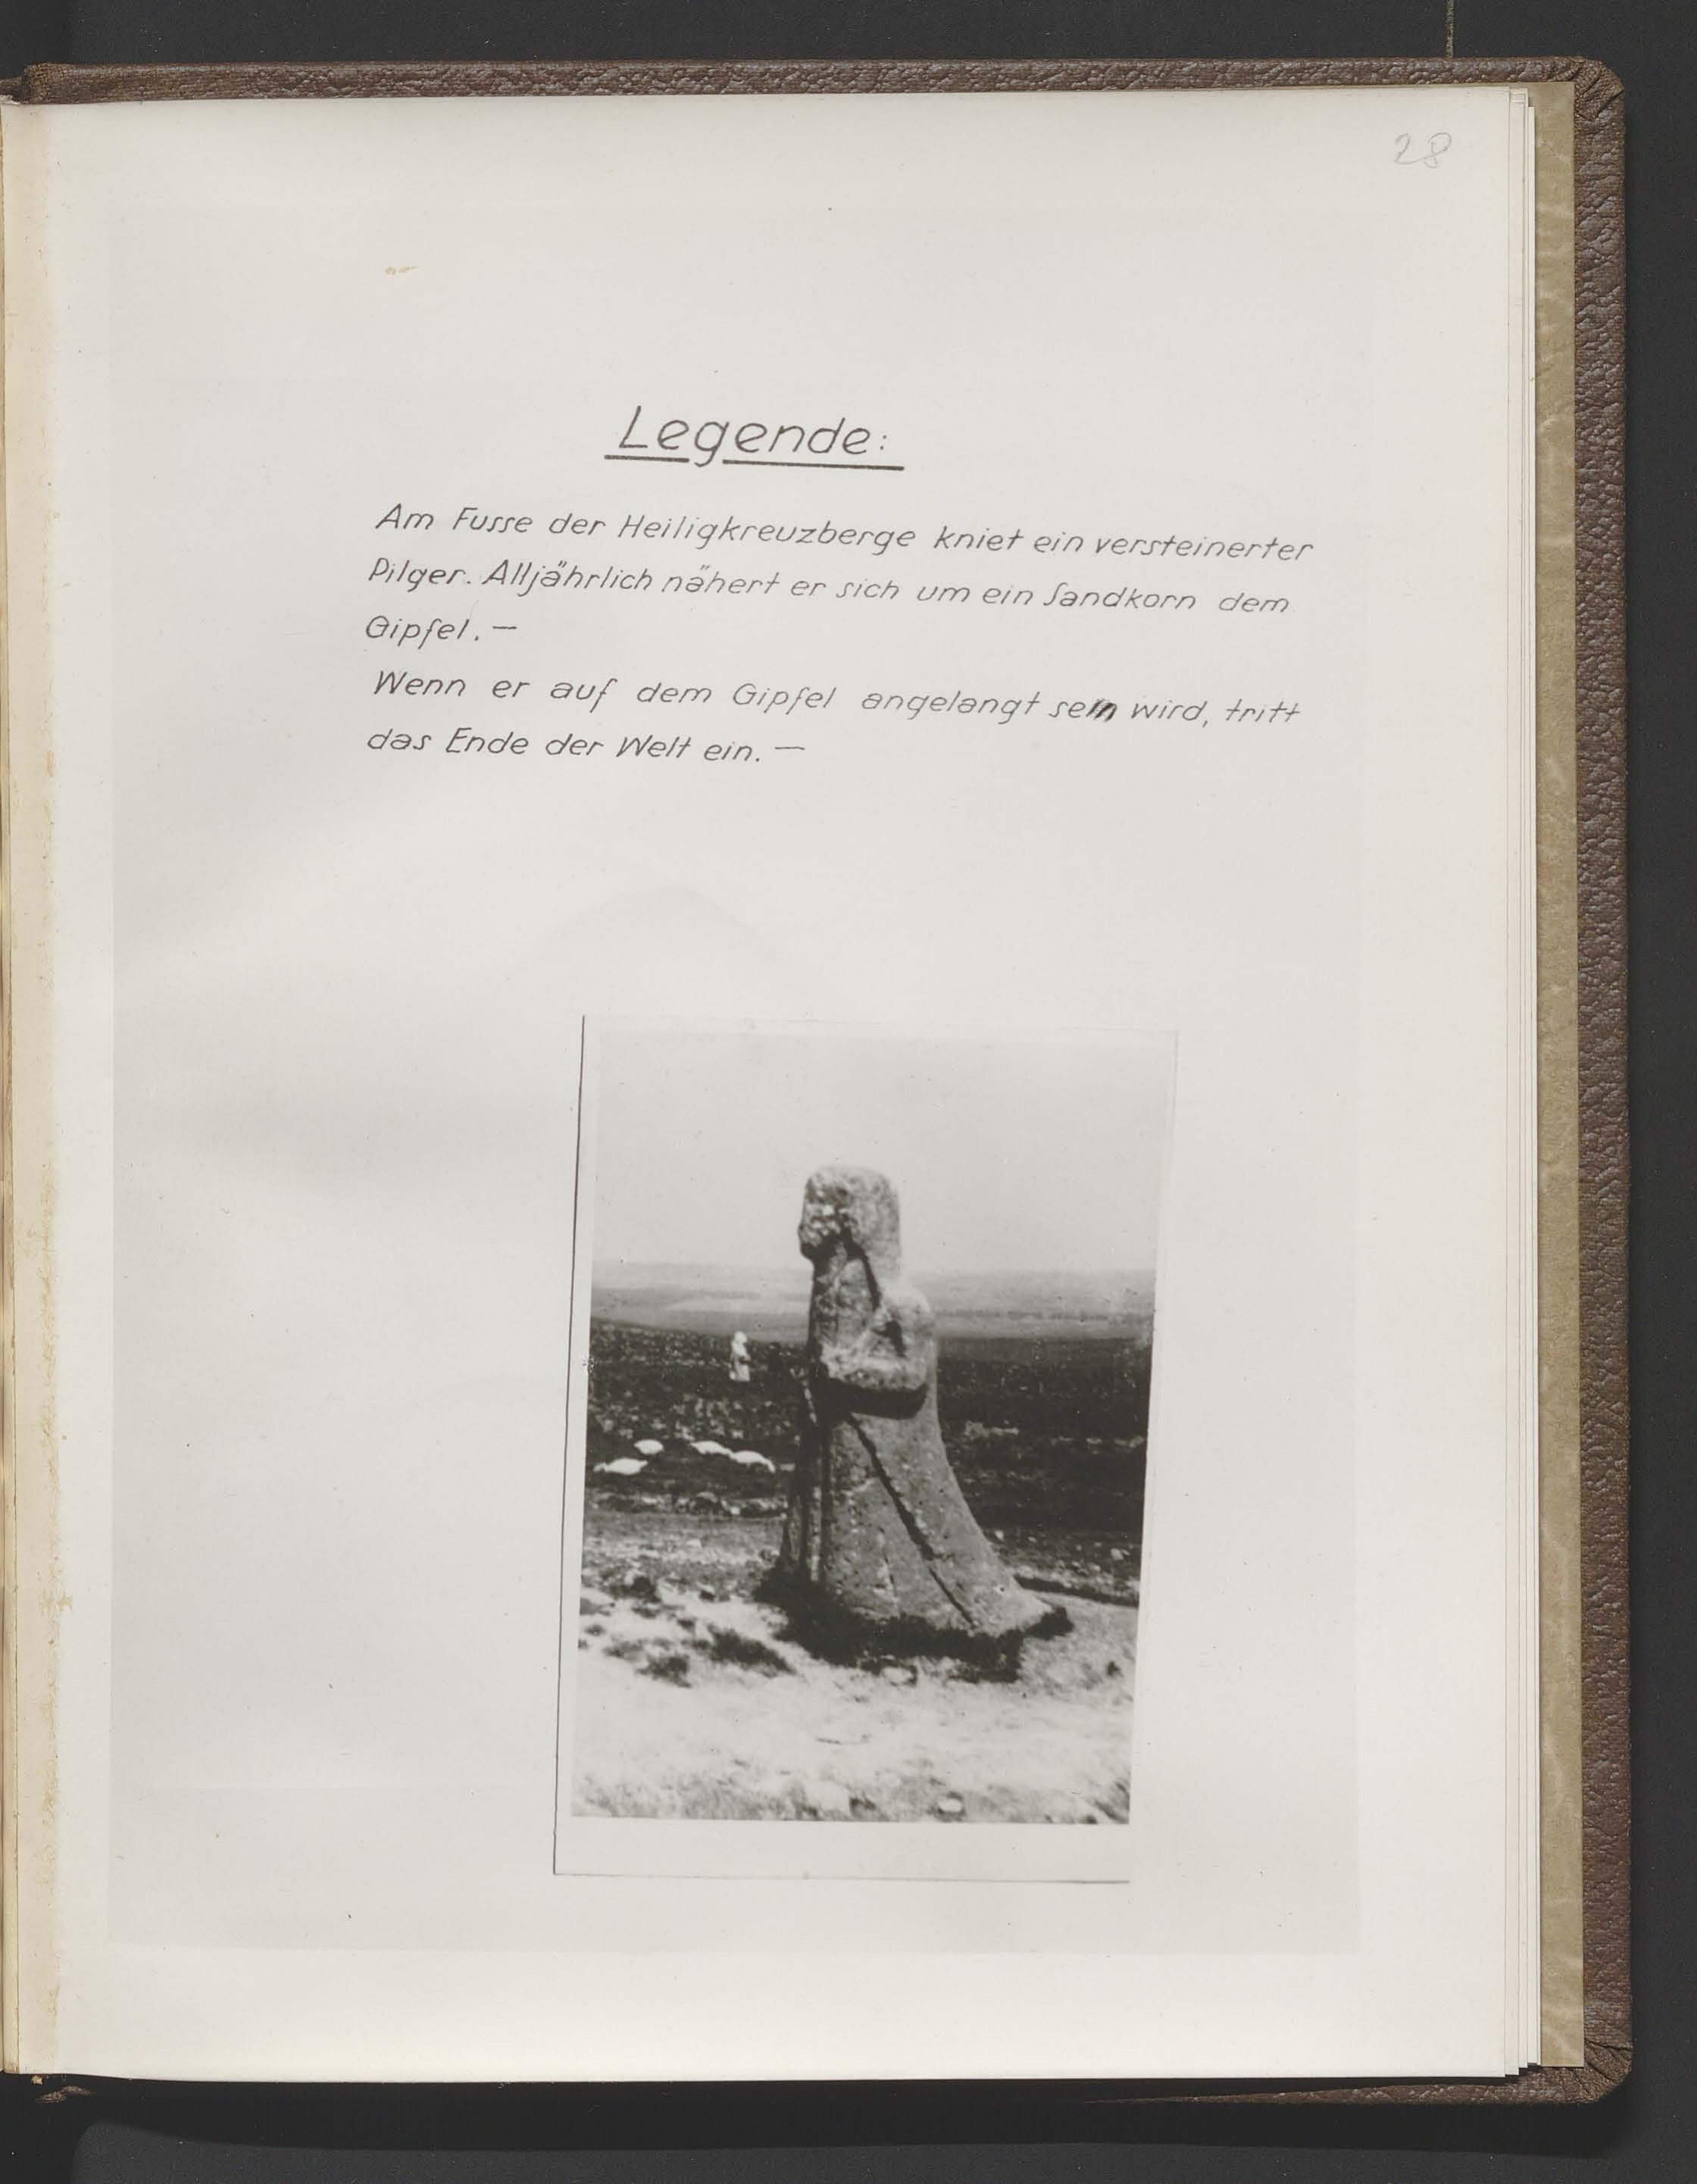 28
Legende:
Am Fusse der Heiligkreuzberge kniet ein versteinerter
Pilger. Alljährlich nähert er sich um ein Sandkorn dem
Gipfel. —
Wenn er auf dem Gipfel angelangt sein wird, tritt
das Ende der Welt ein. —